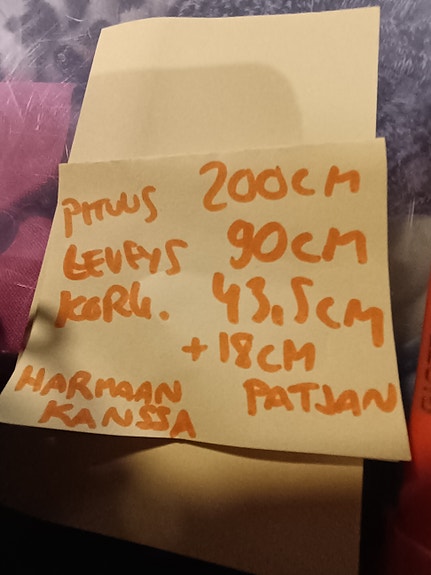 PITUUS 200CM
LEVEYS 90CM
KORK. 43,5CM
+ 18CM
HARMAAN PATJAN
KANSSA